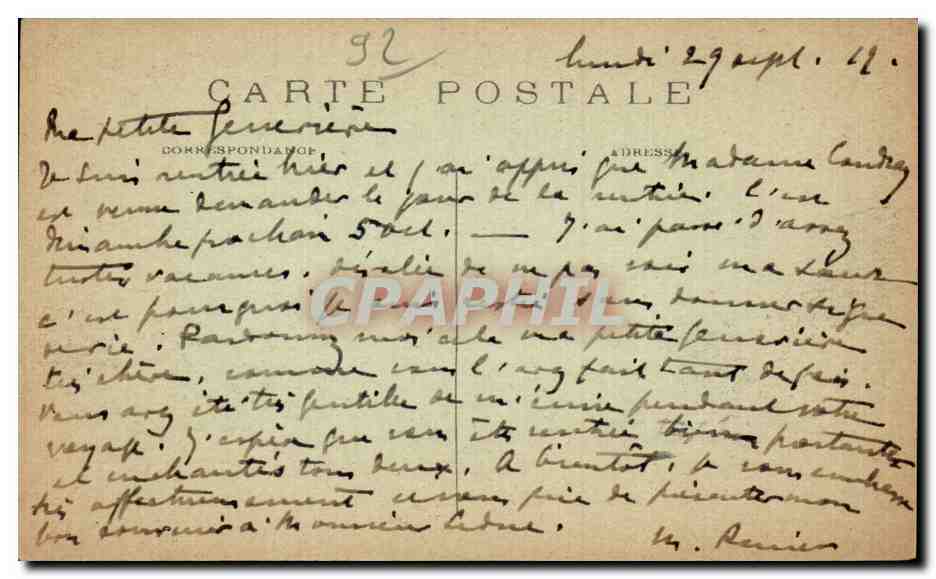 92
lundi 29 sept. 19.
CARTE POSTALE
Ma petite Geneviève
CORRESPONDANCE ADRESSE
Je suis rentrée hier et j'ai appris que Madame
est venue demander le jour de la rentrée. C'est
dimanche prochain 5 oct. — J'ai passé d'assez
tristes vacances. désolée de ne pas voir ma sœur
c'est pourquoi je suis restée sans donner signe
de vie. Pardonnez moi cela ma petite Geneviève
très chère, comme vous l'avez fait tant de fois.
Vous avez été très gentille de m'écrire pendant votre
voyage. J'espère que vous êtes rentrée bien portantes
et enchantés tous deux. A bientôt, je vous embrasse
très affectueusement et vous prie de présenter mon
bon souvenir à Monsieur
M.
CPAPHIL